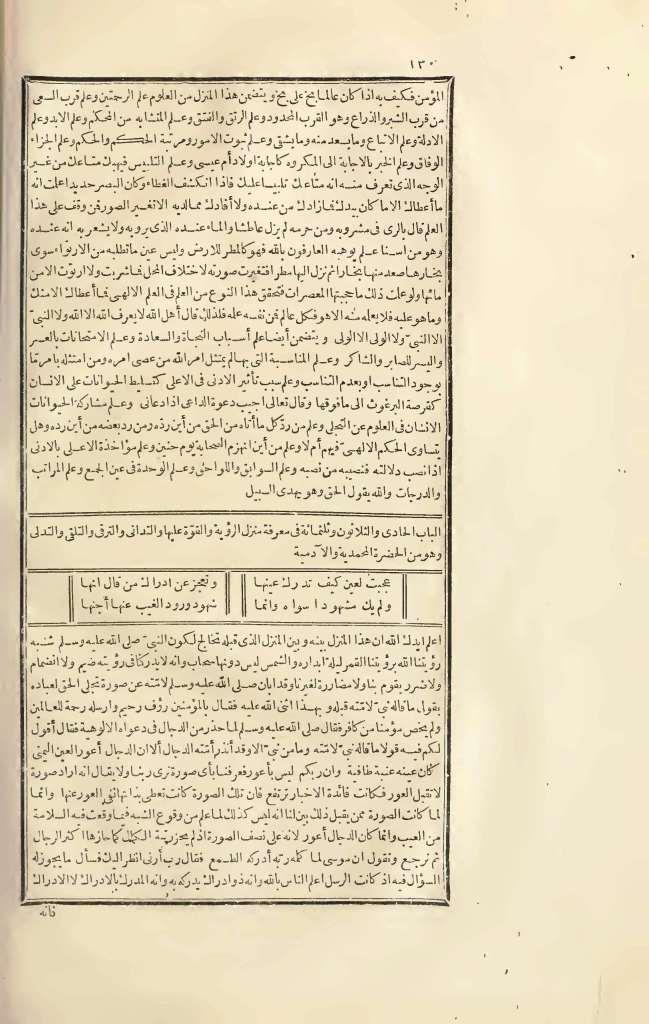 ١٣٠
المؤمن فكيف به اذا كان عالما بخ على بخ ويتضمن هذا المنزل من العلوم علم الرحمتين وعلم قرب السعى
من قرب الشبر والذراع وهو القرب المحدود وعلم الرتق والفتق وعلم المتشابه من المحكم وعلم الابد وعلم
الادلة وعلم الاتباع وما يسعد منه وما يشقى وعلم ثبوت الامور ومرتبة الحكم والحكم وعلم الجزاء
الوفاق وعلم الخبر بالاجابة الى المكروه كاجابة اولاد أم عيسى وعلم التلبيس فيهبك متاعك من غير
الوجه الذى تعرف منه انه متاعك تلبيسا عليك فاذا انكشف الغطاء وكان البصر حديدا علمت انه
ما أعطاك الا ما كان بيدك فما زادك من عنده ولا أفادك مما لديه الا تغيير الصور فمن وقف على هذا
العلم قال بالرى فى مشروبه ومن حرمه لم يزل عاطشا والماء عنده الذى يرويه ولا يشعر به انه عنده
وهو من اسنا علم يوهبه العارفون بالله فهو كالمطر للارض وليس عين ما تطلبه من الارتواء سوى
بخارها صعد منها بخارا ثم نزل اليها مطرا فتغيرت صورته لاختلاف المحل فما شربت ولا ارتوت الا من
مائها ولو علمت ذلك ما حجبتها المعصرات فتحقق هذا النوع من العلم فى العلم الالهى فما أعطاك الا منك
وما هو عليه فلا يعلمه منه الا هو فكل عالم فمن نفسه علمه فلذلك قال أهل الله لا يعرف الله الا الله ولا النبىّ
الا النبىّ ولا الولى الا الولى ويتضمن أيضا علم أسباب النجاة والسعادة وعلم الامتحانات بالعسر
واليسر للصابر والشاكر وعلم المناسبة التى بها لم يمتثل امر الله من عصى امره ومن امتثله بامر مّا
بوجود التناسب او بعدم التناسب وعلم سبب تأثير الادنى فى الاعلى كتسليط الحيوانات على الانسان
كقرصة البرغوث الى ما فوقها وقال تعالى اجيب دعوة الداعى اذا دعانى وعلم مشاركة الحيوانات
الانسان فى العلوم عن التجلى وعلم من ردّ كل ما أتاه من الحق من أين رده ومن رد بعضه من أين رده وهل
يتساوى الحكم الالهى فيهم أم لا وعلم من أين انهزم الصحابة يوم حنين وعلم مؤاخذة الاعلى بالادنى
اذا نصب دلالته فنصيبه من نصبه وعلم السوابق واللواحق وعلم الوحدة فى عين الجمع وعلم المراتب
والدرجات والله يقول الحق وهو يهدى السبيل
الباب الحادى والثلاثون وثلثمائة فى معرفة منزل الرؤية والقوّة عليها والتدانى والترقى والتلقى والتدلى
وهو من الحضرة المحمدية والآدمية
عجبت لعين كيف تدرك عينها وتعجز عن ادراك من قال انها
ولم يك مشهودا سواه وانما شهود ورود الغيب عنها أجنها
اعلم ايدك الله ان هذا المنزل بينه وبين المنزل الذى قبله تخالج لكون النبىّ صلى الله عليه وسلم شبه
رؤيتنا الله برؤيتنا القمر ليلة ابداره والشمس ليس دونها سحاب وانه لا يدركنا فى رؤيته ضيم ولا انضمام
ولا ضرر يقوم بنا ولا مضاررة لغيرنا وقد ابان صلى الله عليه وسلم لامّته عن صورة تجلى الحق لعباده
بقول ما قاله نبىّ لامّته قبله وبهذا اثنى الله عليه فقال بالمؤمنين رؤف رحيم وارسله رحمة للعالمين
ولم يخص مؤمنا من كافر فقال صلى الله عليه وسلم لما حذر من الدجال فى دعواه الالوهية فقال أقول
لكم فيه قولا ما قاله نبىّ لامّته وما من نبىّ الا وقد أنذر أمّته الدجال ألا ان الدجال أعور العين اليمنى
كان عينه عنبة طافية وان ربكم ليس باعور فعرفنا بأى صورة نرى ربنا ولا يقال انه اراد صورة
لا تقبل العور فكانت فائدة الاخبار ترتفع فان تلك الصورة كانت تعطى بذاتها نفى العور عنها وانما
لما كانت الصورة ممن يقبل ذلك بين لنا انه ليس كذلك لما علم من وقوع الشبه فيما وقعت فيه السلامة
من العيب وانما كان الدجال أعور لانه على نصف الصورة اذ لم يحز رتبة الكمال كما حازها اكثر الرجال
ثم نرجع ونقول ان موسى لما كلمه ربه أدركه الطمع فقال رب أرنى انظر اليك فسأل ما يجوز له
السؤال فيه اذ كانت الرسل اعلم الناس بالله وانه ذو ادراك يدركه به وانه المدرك بالادراك لا الادراك
فانه